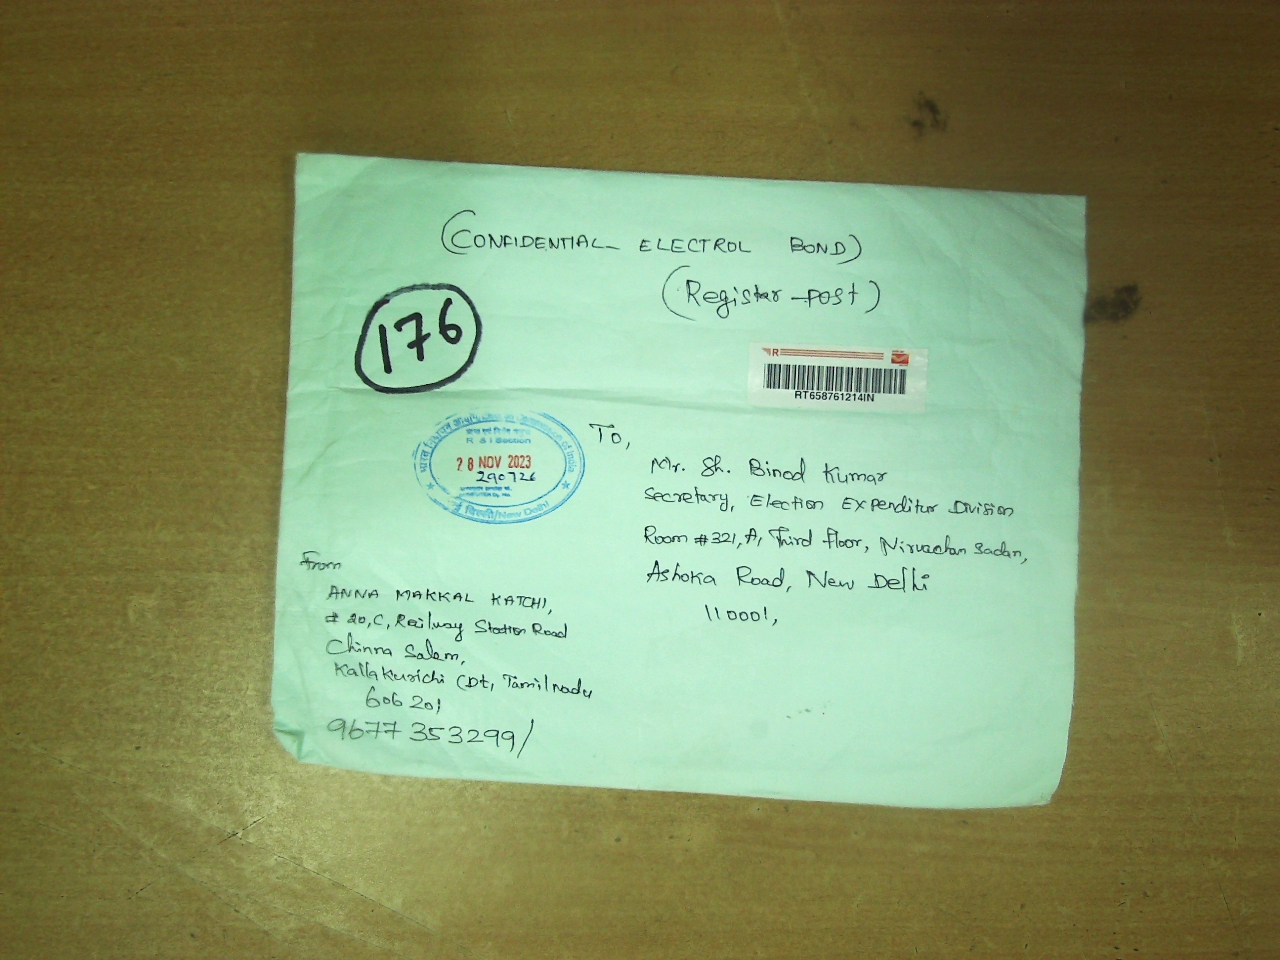 (CONFIDENTIAL ELECTROL BOND)
(Registar post)
176
R
RT658761214IN
भारत निर्वाचन आयोग
Commission of India
R & I Section
28 NOV 2023
290726
नई दिल्ली/New Delhi
To,
Mr. Sh. Binod Kumar
Secretary, Election Expenditur Division
Room #321, A, Third floor, Nirvachan Sadan,
Ashoka Road, New Delhi
110001,
From
ANNA MAKKAL KATCHI,
# 20, C, Railway Station Road
Chinna Salem,
Kallakurichi (Dt, Tamilnadu
606 201
9677 353299/